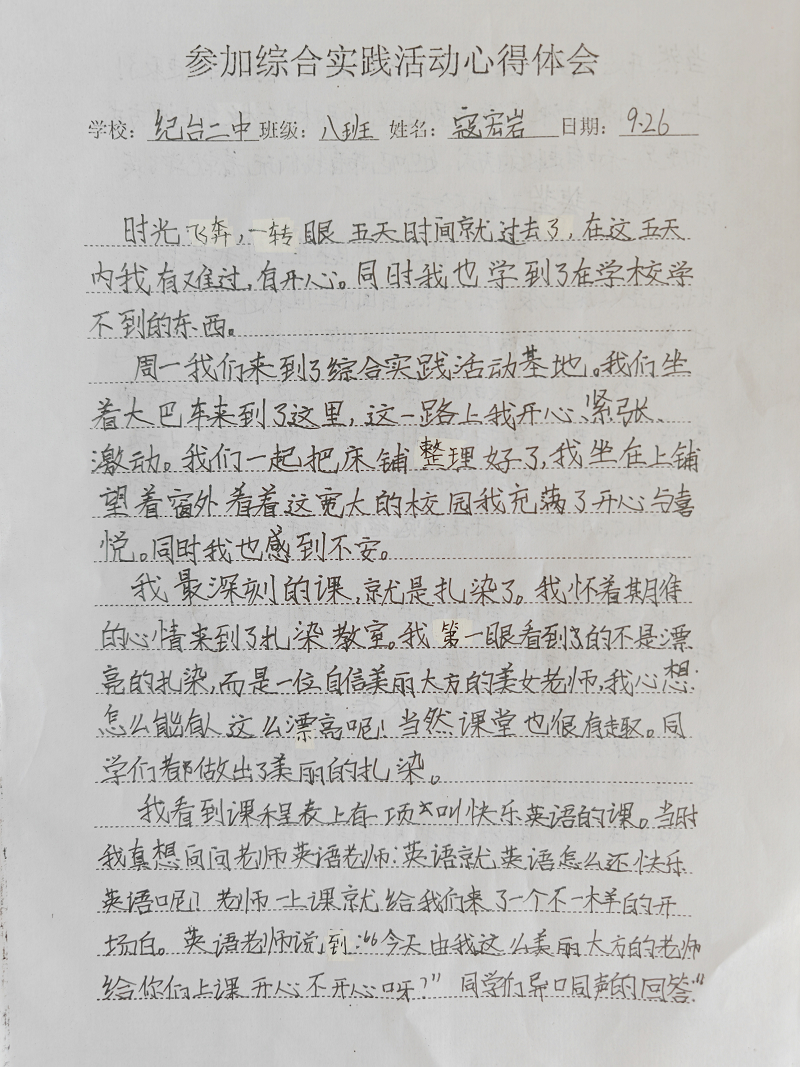 参加综合实践活动心得体会
学校：纪台二中 班级：八班 姓名：寇宏岩 日期：9.26
时光飞奔，一转眼五天时间就过去了，在这五天
内我有难过，有开心。同时我也学到了在学校学
不到的东西。
周一我们来到了综合实践活动基地。我们坐
着大巴车来到了这里，这一路上我开心、紧张、
激动。我们一起把床铺整理好了，我坐在上铺
望着窗外看着这宽大的校园我充满了开心与喜
悦。同时我也感到不安。
我最深刻的课，就是扎染了。我怀着期待
的心情来到了扎染教室。我第一眼看到了的不是漂
亮的扎染，而是一位自信美丽大方的美女老师，我心想：
怎么能有人这么漂亮呢！当然课堂也很有趣。同
学们都做出了美丽的扎染。
我看到课程表上有一项叫快乐英语的课。当时
我真想问问老师英语老师：英语就英语怎么还快乐
英语呢！老师一上课就给我们来了一个不一样的开
场白。英语老师说到：“今天由我这么美丽大方的老师
给你们上课开心不开心呀？”同学们异口同声的回答：“